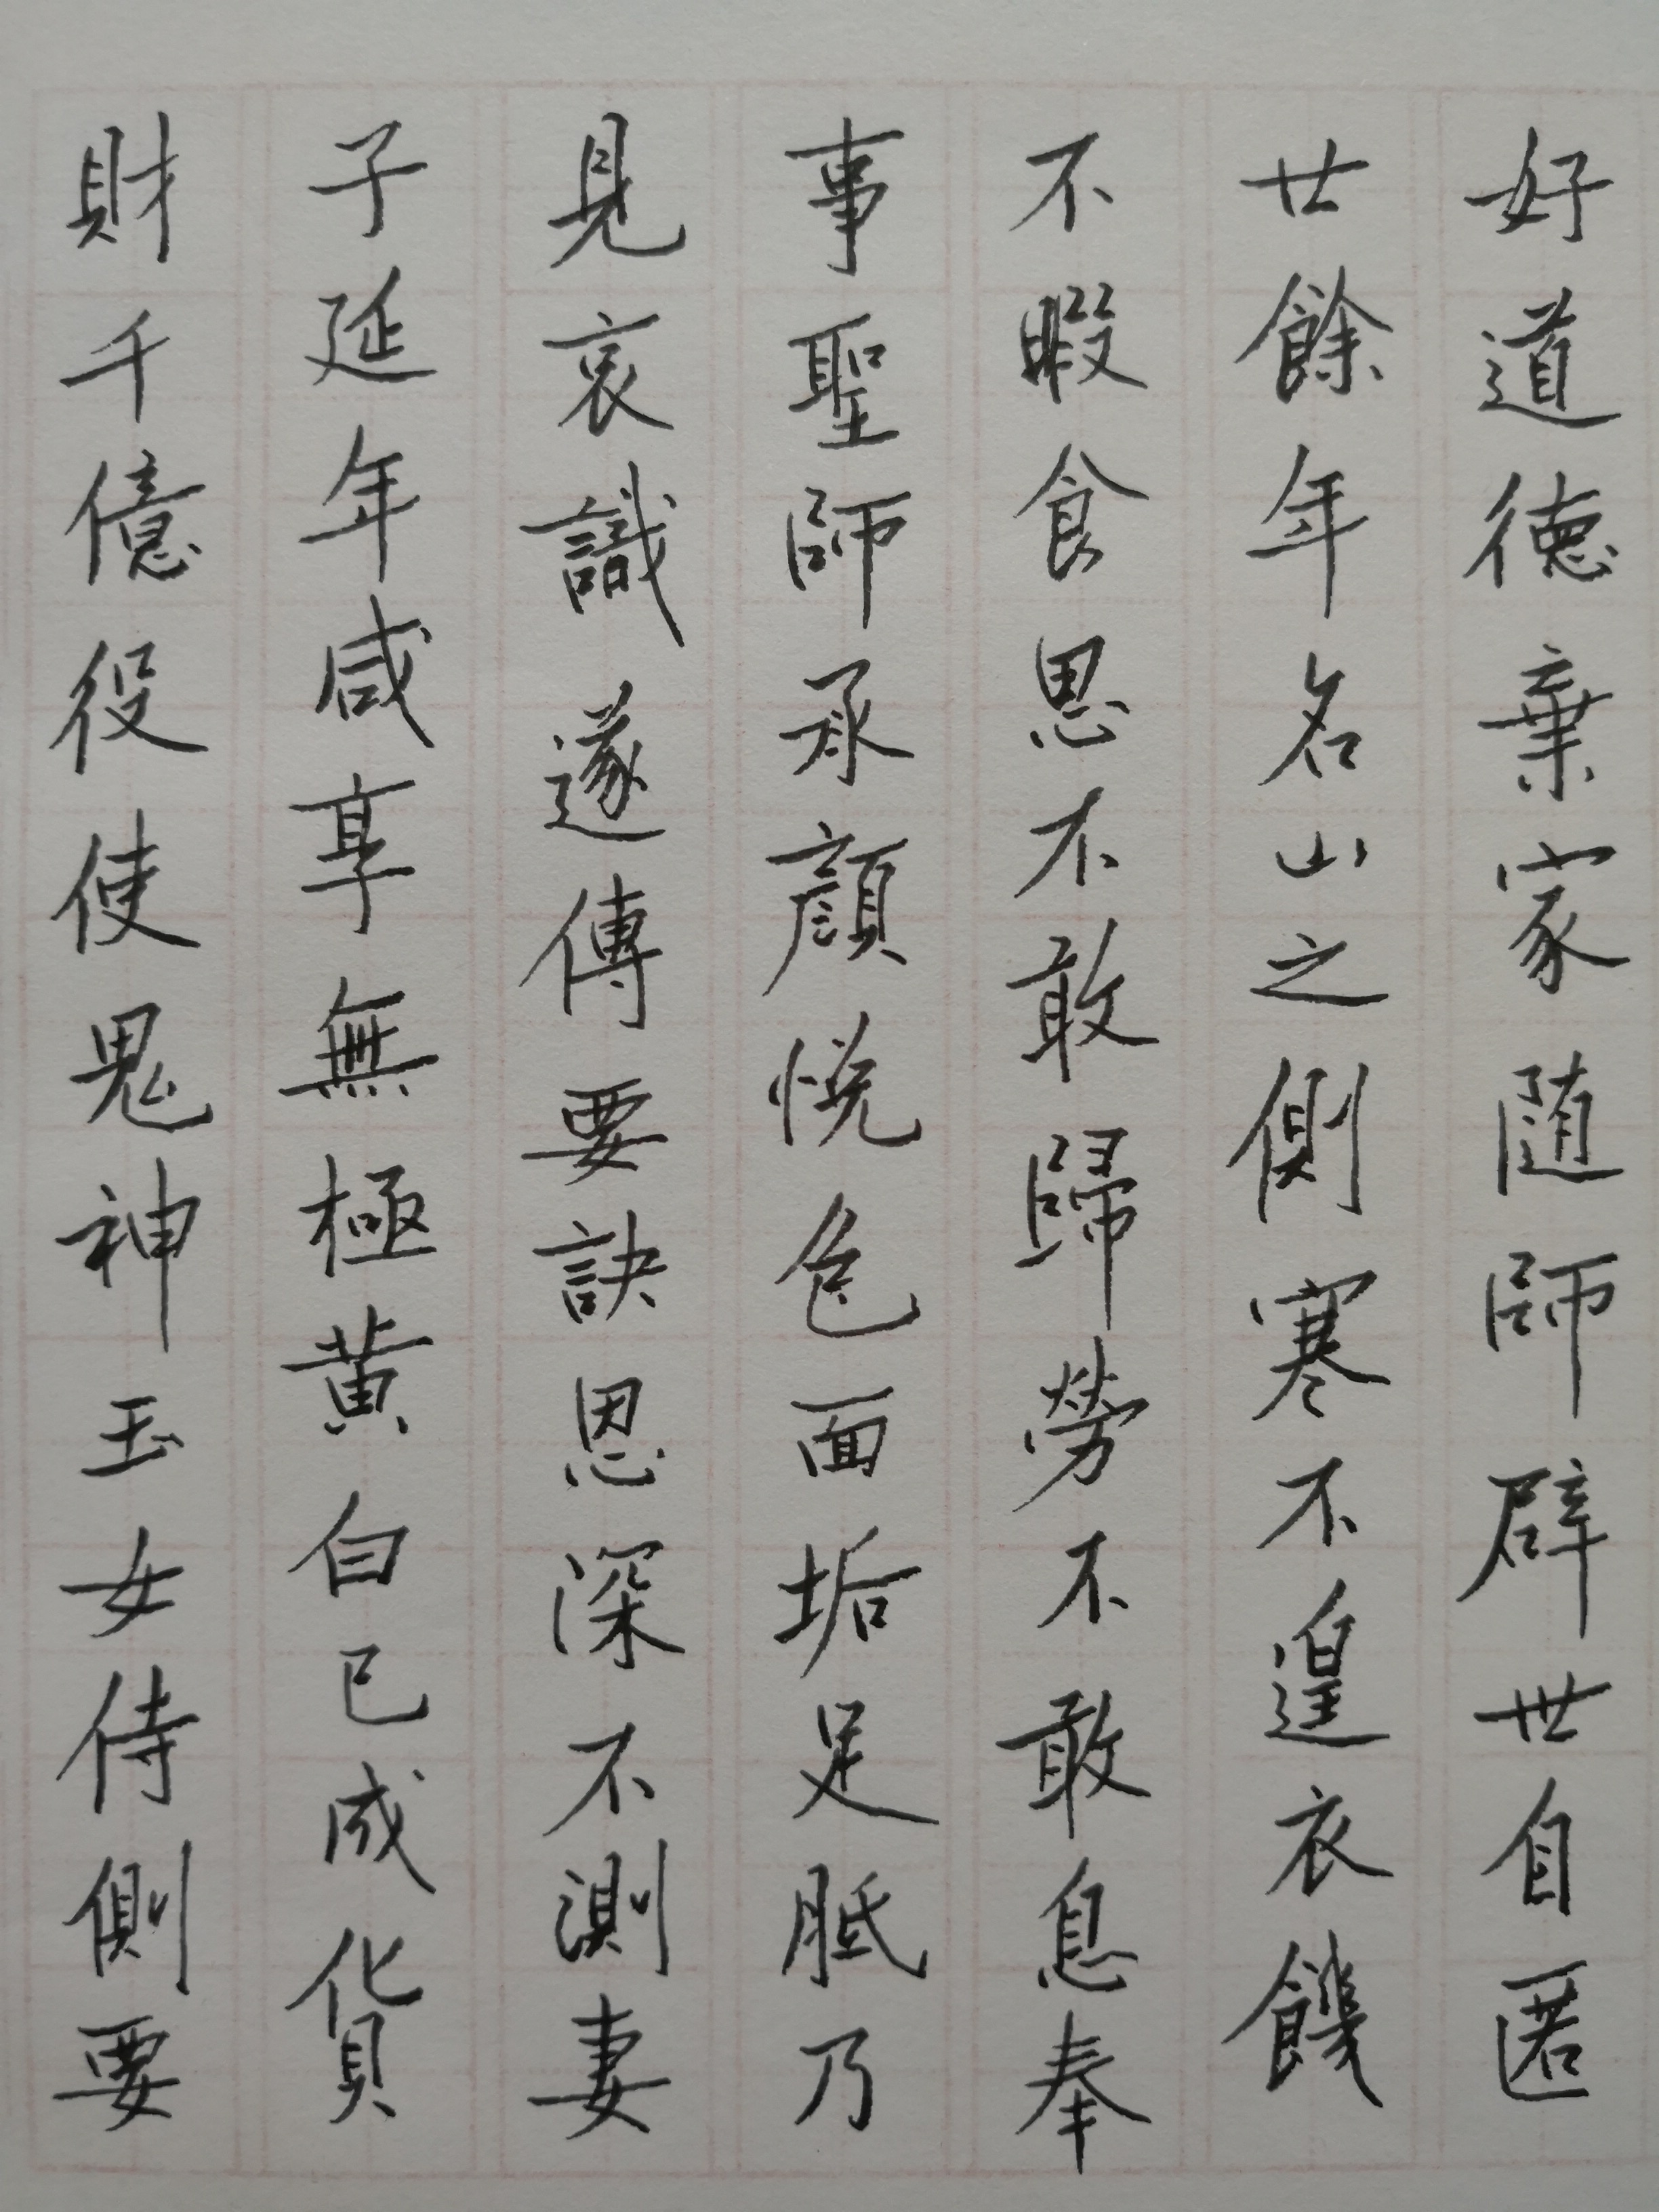 好道德棄家随師辟世自匿
廿餘年名山之側寒不遑衣饑
不暇食思不敢歸勞不敢息奉
事聖師承顔悅色面垢足胝乃
見哀識遂傳要訣恩深不測妻
子延年咸享無極黄白已成貨
財千億役使鬼神玉女侍側要